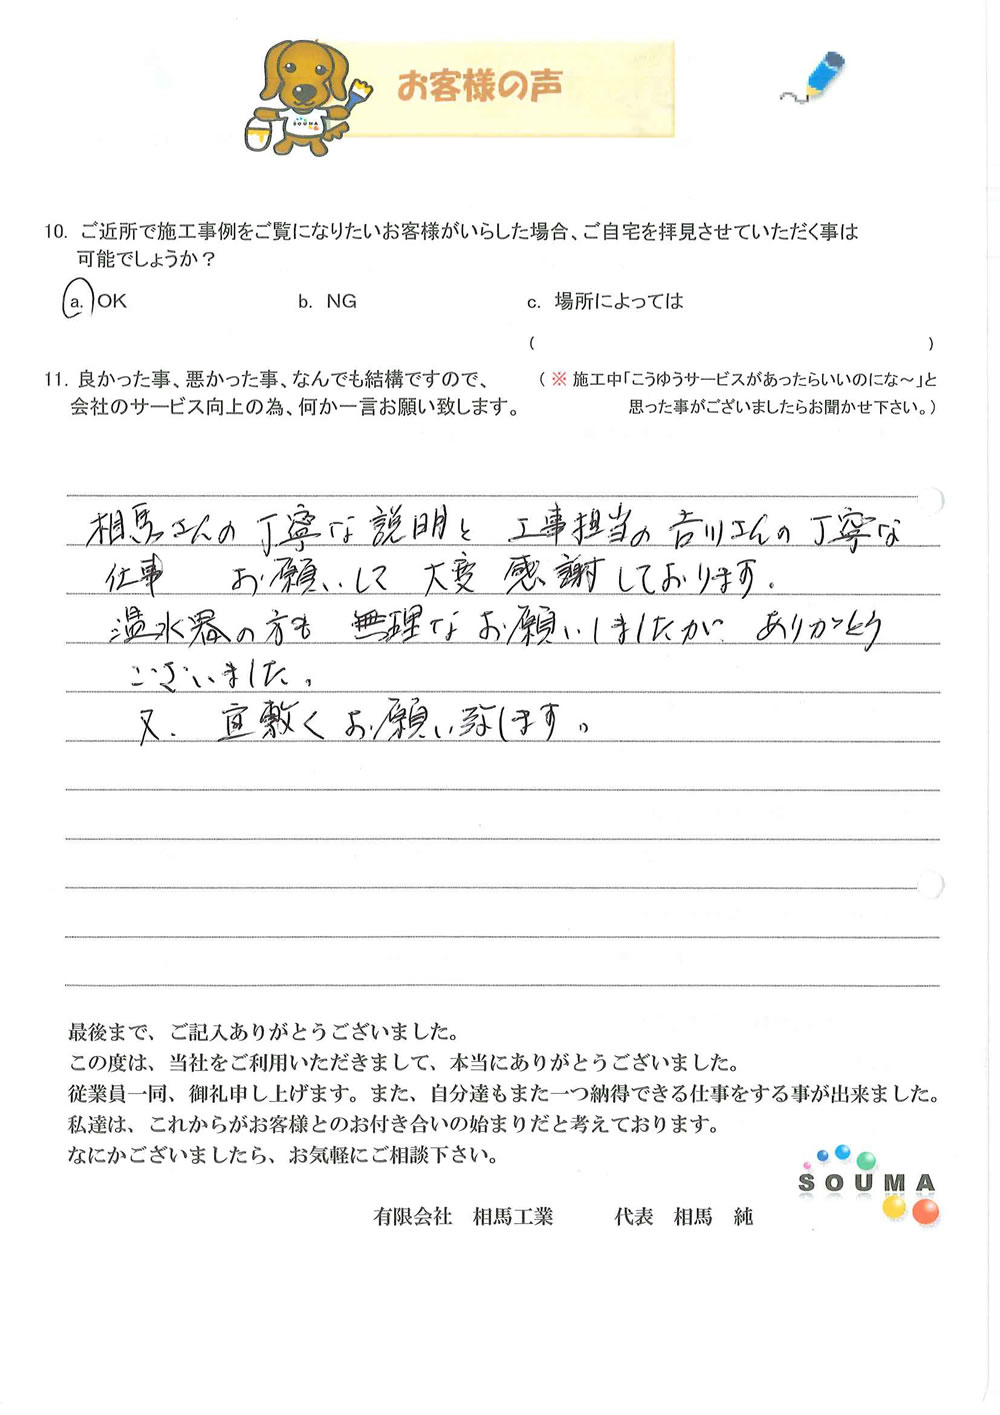 お客様の声
SOUMA
10. ご近所で施工事例をご覧になりたいお客様がいらした場合、ご自宅を拝見させていただく事は
可能でしょうか？
a. OK b. NG c. 場所によっては
( )
11. 良かった事、悪かった事、なんでも結構ですので、 （ ※ 施工中「こうゆうサービスがあったらいいのにな～」と
会社のサービス向上の為、何か一言お願い致します。 思った事がございましたらお聞かせ下さい。）
相馬さんの丁寧な説明と 工事担当の吉川さんの丁寧な
仕事 お願いして 大変 感謝しております。
温水器の方も 無理なお願いしましたが、ありがとう
ございました。
又、宜敷くお願い致します。
最後まで、ご記入ありがとうございました。
この度は、当社をご利用いただきまして、本当にありがとうございました。
従業員一同、御礼申し上げます。また、自分達もまた一つ納得できる仕事をする事が出来ました。
私達は、これからがお客様とのお付き合いの始まりだと考えております。
なにかございましたら、お気軽にご相談下さい。
SOUMA
有限会社 相馬工業 代表 相馬 純